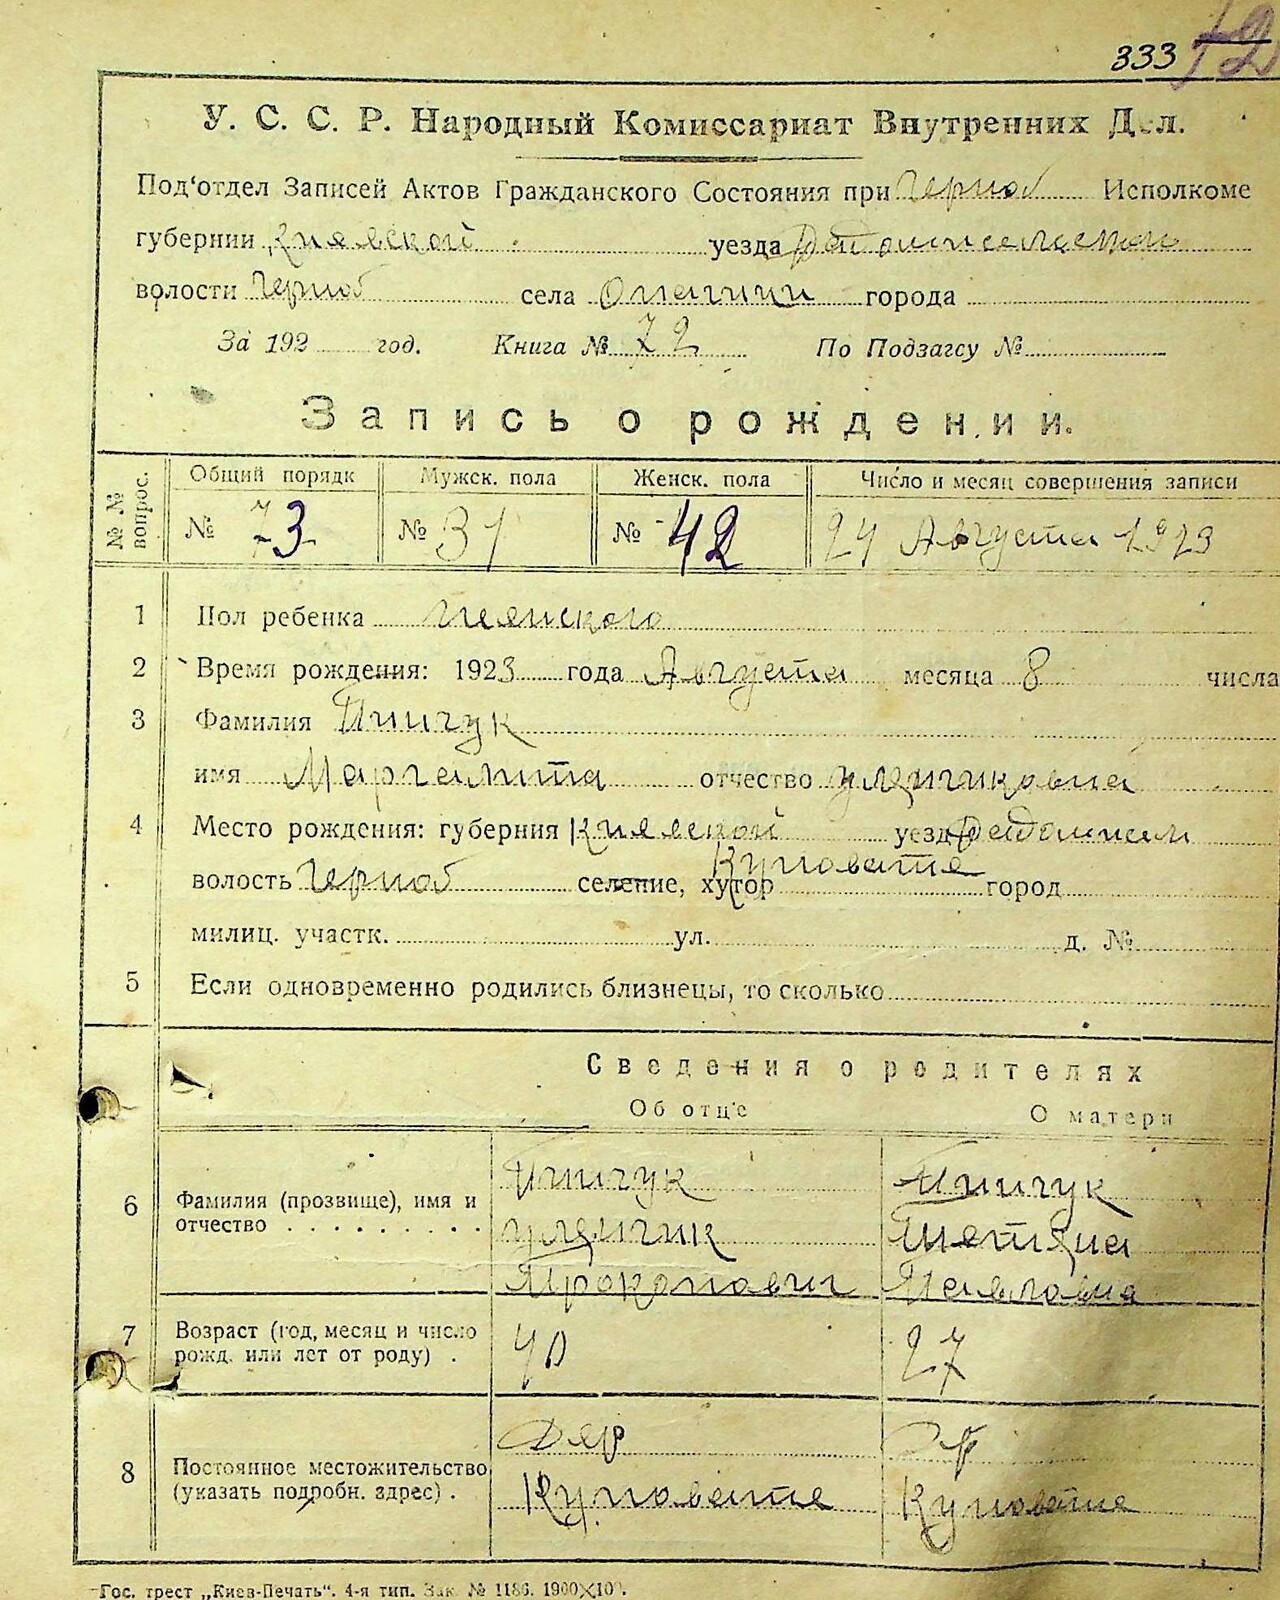 333 72
У. С. С. Р. Народный Комиссариат Внутренних Дел.
Под'отдел Записей Актов Гражданского Состояния при Черноб Исполкоме
губернии Киевской уезда
волости Черноб села Опачичи города
За 192 год. Книга № 72 По Подзагсу №
Запись о рождении.
№№ вопрос. Общий порядк Мужск. пола Женск. пола Число и месяц совершения записи
№ 73 № 31 № 42 24 Августа 1923
1 Пол ребенка женского
2 Время рождения: 1923 года Августа месяца 8 числа
3 Фамилия Пинчук
имя отчество
4 Место рождения: губерния Киевской уезд
волость Черноб селение, хутор Куповате город
милиц. участк. ул. д. №
5 Если одновременно родились близнецы, то сколько
Сведения о родителях
Об отце О матери
6 Фамилия (прозвище), имя и отчество Пинчук Пинчук
Прокопович Павловна
7 Возраст (год, месяц и число рожд. или лет от роду) . 40 27
8 Постоянное местожительство (указать подробн. адрес) . Дер Куповате Куповате
Гос. трест „Киев-Печать". 4-я тип. Зак. № 1186. 1900×100.